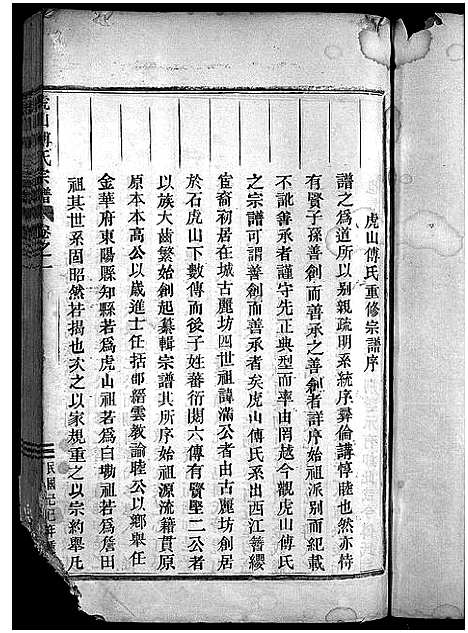 虎山傅氏重修宗譜序
譜之爲道所以別親疏明系統序彝倫講惇睦也然亦恃
有賢子孫善創而善承之善創者詳序始祖派別而紀載
不訛善承者謹守先正典型而率由罔越今觀虎山傅氏
之宗譜可謂善創而善承者矣虎山傅氏系出西江簪纓
宦裔初居在城古麗坊四世祖諱滿公者由古麗坊創居
於石虎山下數傳而後子姓蕃衍閱六傳有賢聖二公者
以族大齒繁始創起纂輯宗譜其所序始祖源流籍貫原
原本本高公以歲進士任括郡縉雲教諭睦公以鄉舉任
金華府東陽縣知縣若爲虎山祖若爲白坳祖若爲詹田
祖其世系固昭然若揭也夫之以家規重之以宗約舉凡
虎山傅氏宗譜 卷之一
民國己巳年重